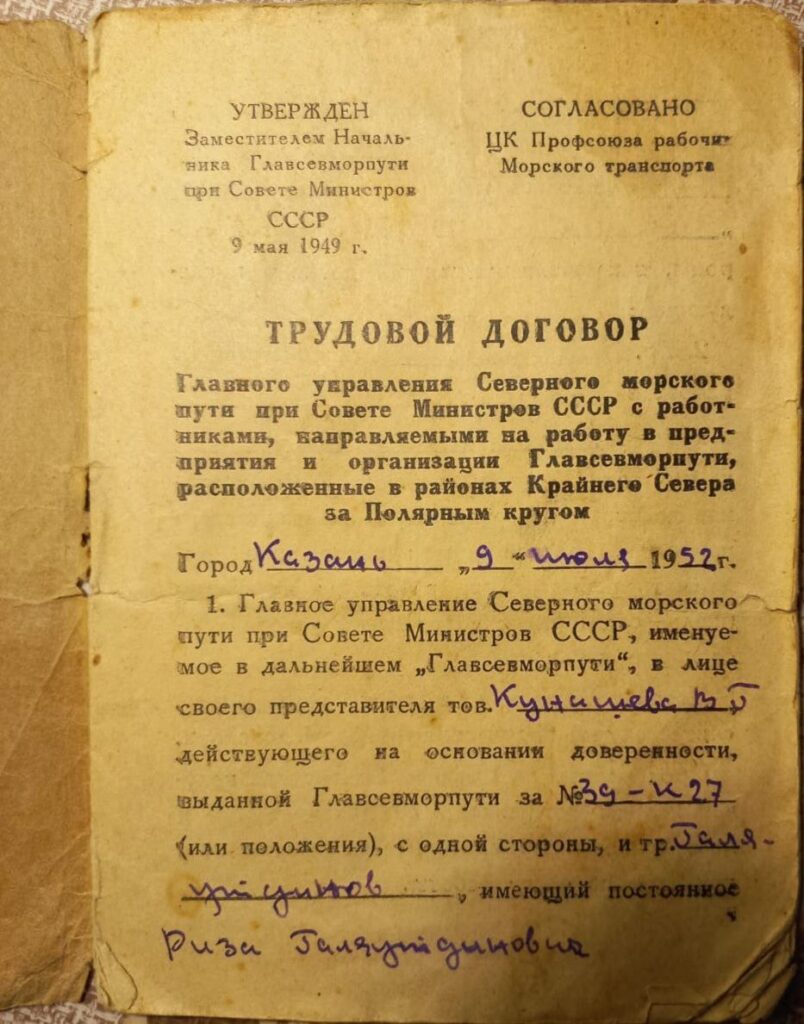 УТВЕРЖДЕН
Заместителем Началь-
ника Главсевморпути
при Совете Министров
СССР
9 мая 1949 г.
СОГЛАСОВАНО
ЦК Профсоюза рабочих
Морского транспорта
ТРУДОВОЙ ДОГОВОР
Главного управления Северного морского
пути при Совете Министров СССР с работ-
никами, направляемыми на работу в пред-
приятия и организации Главсевморпути,
расположенные в районах Крайнего Севера
за Полярным кругом
Город Казань „9“ июля 1952 г.
1. Главное управление Северного морского
пути при Совете Министров СССР, именуе-
мое в дальнейшем „Главсевморпути“, в лице
своего представителя тов.
действующего на основании доверенности,
выданной Главсевморпути за № 39-к27
(или положения), с одной стороны, и гр. Галя-
утдинов, имеющий постоянное
Риза Галяутдинович